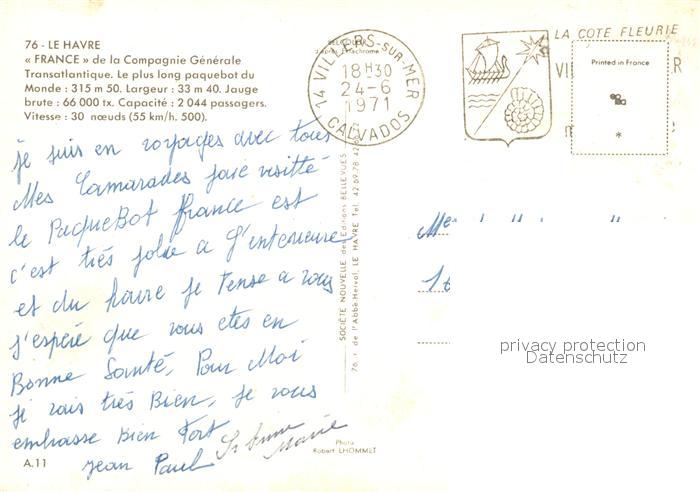 76 - LE HAVRE
« FRANCE » de la Compagnie Générale
Transatlantique. Le plus long paquebot du
Monde : 315 m 50. Largeur : 33 m 40. Jauge
brute : 66 000 tx. Capacité : 2 044 passagers.
Vitesse : 30 nœuds (55 km/h, 500).
je suis en voyages avec tous
Mes Camarades jaie visitté
le PaqueBot france est
c'est très jolie a l'interieure
et du havre je Pense a vous
j'espère que vous etes en
Bonne Santé, Pour Moi
je vais très Bien, je vous
embrasse Bien Fort
Jean Paul
Marie
A.11
Photo
Robert LHOMMET
SOCIÉTÉ NOUVELLE des Éditions BELLEVUES
76, r. de l'Abbé-Herval, LE HAVRE Tél. 42.69.78
14 VILLERS-SUR-MER
18H30
24-6
1971
CALVADOS
LA COTE FLEURIE
VI
R
Printed in France
*
privacy protection
Datenschutz